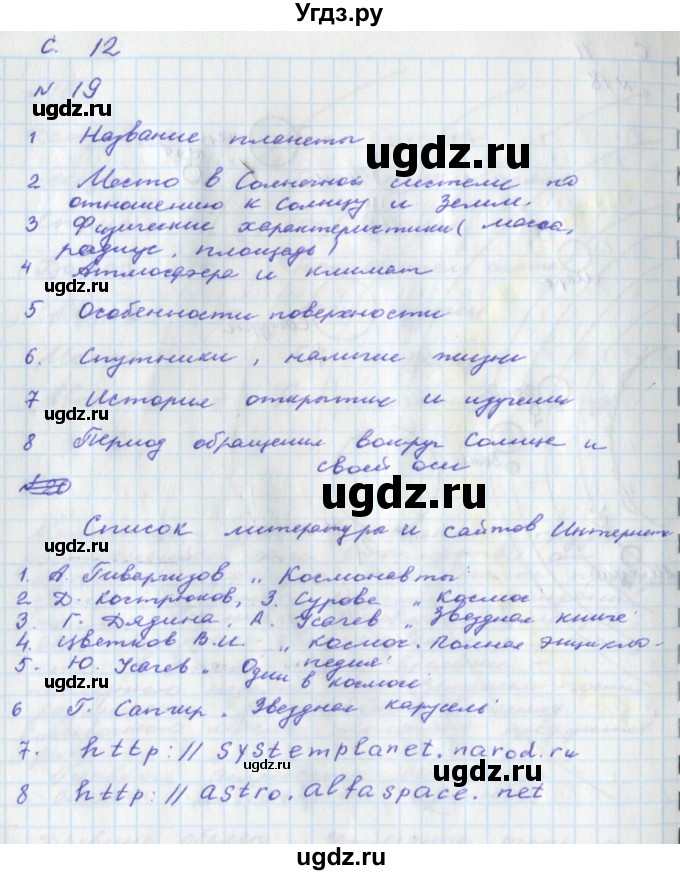 Угдз.ру
С. 12
№ 19
ugdz.ru
1 Название планеты
ugdz.ru
2 Место в Солнечной системе по
отношению к Солнцу и Земли.
3 Физические характеристики (масса,
радиус, площадь)
ugdz.ru
4 Атмосфера и климат
5 Особенности поверхности
6. Спутники, наличие жизни
7 История открытия и изучения
ugdz.ru
8 Период обращения вокруг Солнца и
своей оси
ugdz.ru
Список литература и сайтов Интернета
ugdz.ru
1. А. Гиваргизов „Космонавты"
2 Д. Костюков, З. Сурова „Космос"
3. Г. Дядина, А. Усачев „Звездная книга"
4. Цветков В.И. „Космос. Полная энцикло-
педия"
5. Ю. Усачев „Один в космосе"
ugdz.ru
6 Г. Сапгир „Звездная карусель"
7. http://systemplanet.narod.ru
ugdz.ru
8 http://astro.alfaspace.net
ugdz.ru
ugdz.ru